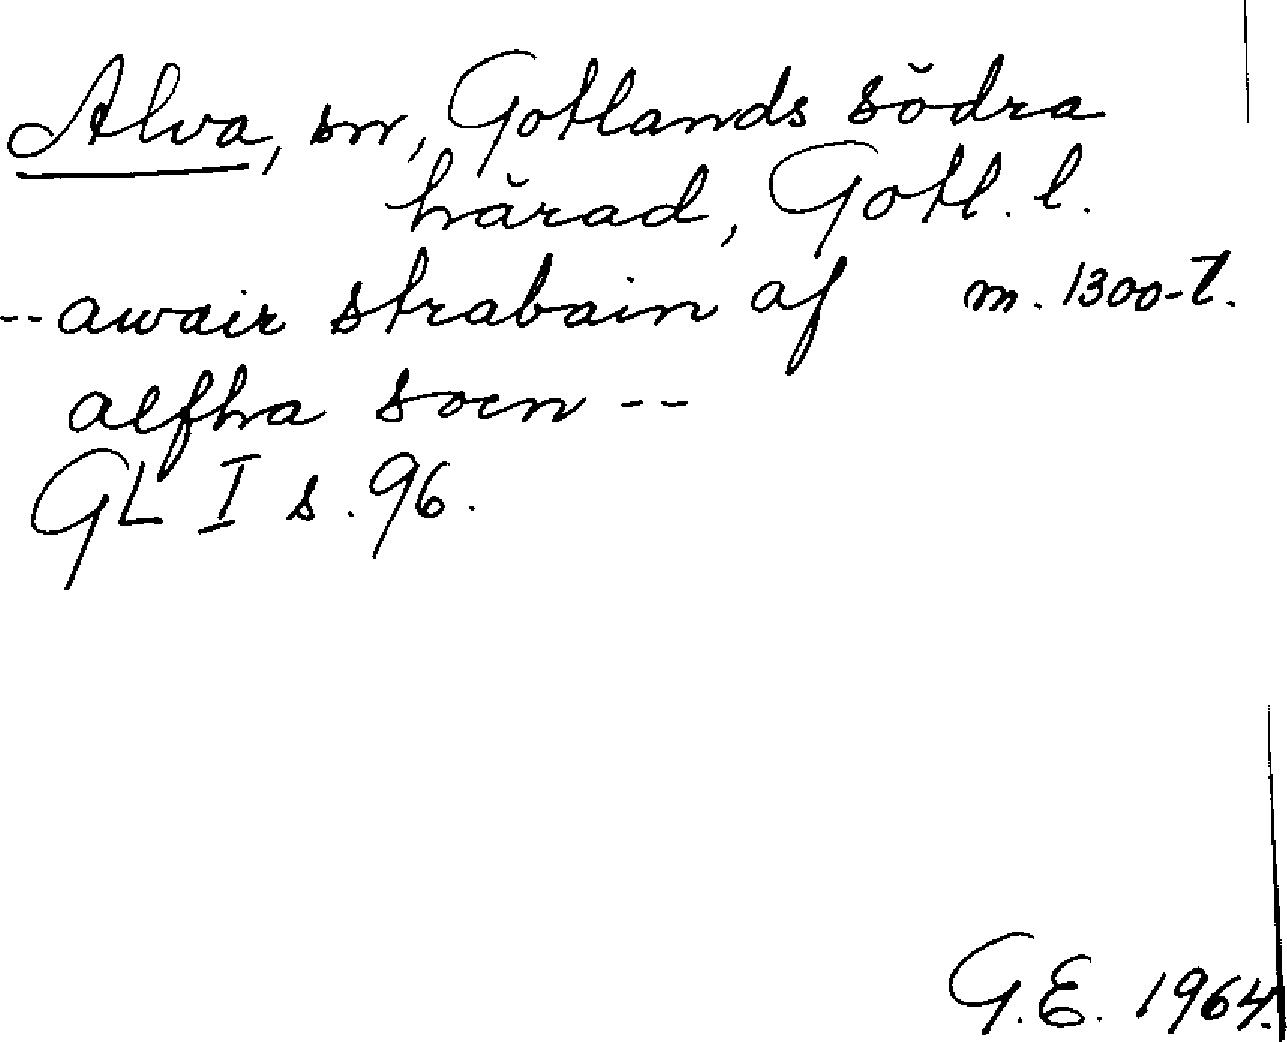 Alva, sn, Gotlands södra
härad, Gotl. l.
-- awair strabain af m. 1300-t.
alfha socn --
GL I s. 96.
G.E. 1964.